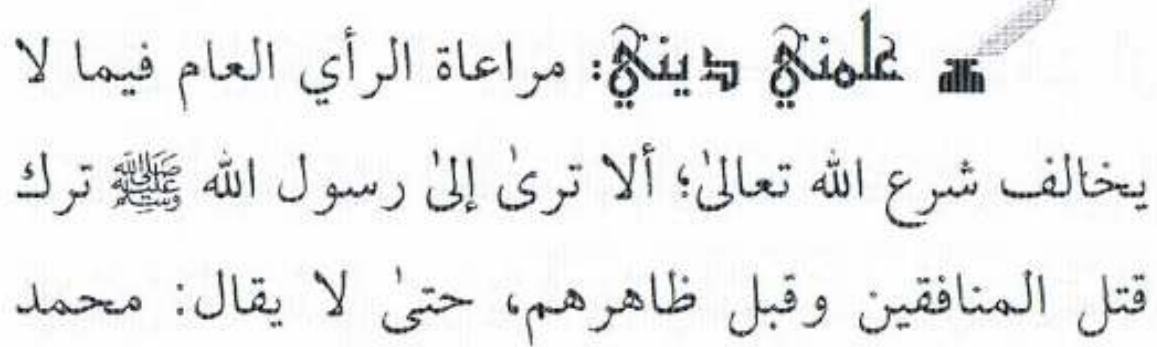 علمني ديني: مراعاة الرأي العام فيما لا
يخالف شرع الله تعالىٰ؛ ألا ترىٰ إلىٰ رسول الله ﷺ ترك
قتل المنافقين وقبل ظاهرهم، حتىٰ لا يقال: محمد